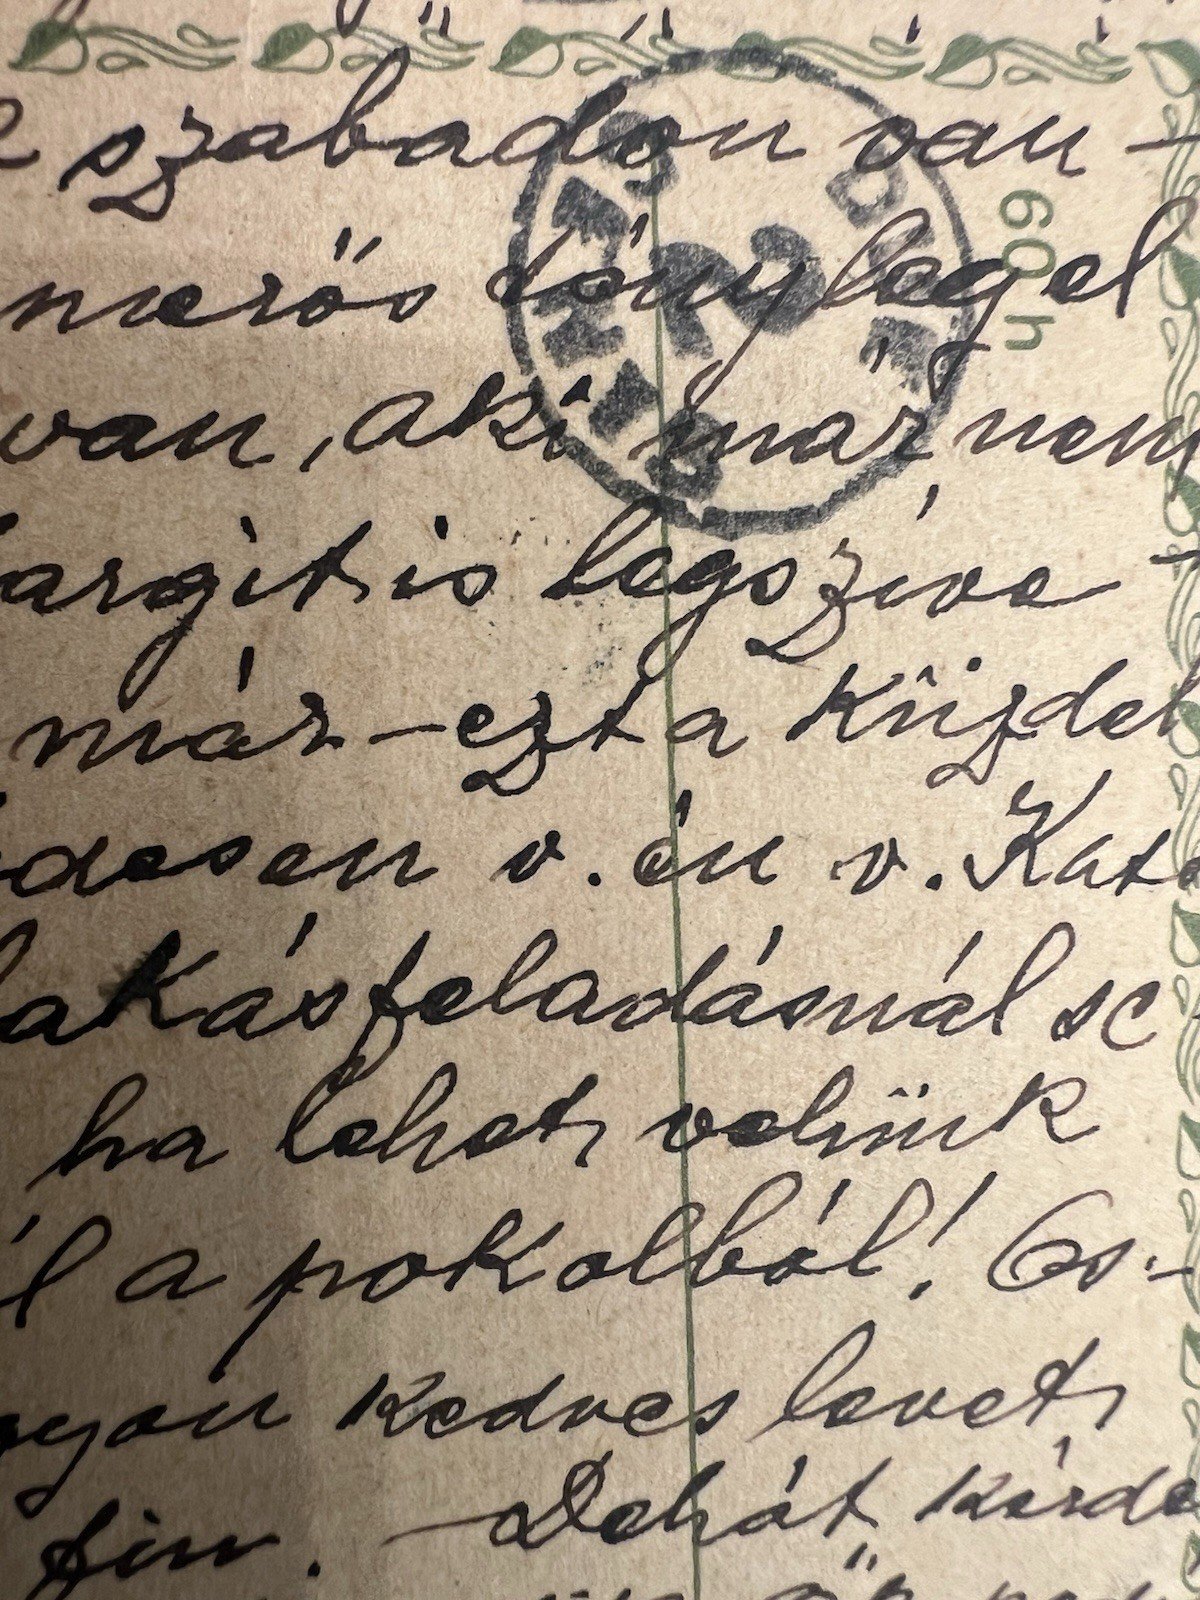 szabadon van -
merős tényleg el
van, aki már nem
argit is legszíve
már - ezt a küzdel
desen v. én v. Kat
lakásfeladásnál se
ha lehet velünk
l a pokolból!
kedves levet
fim. - Dehát kérde
60 h